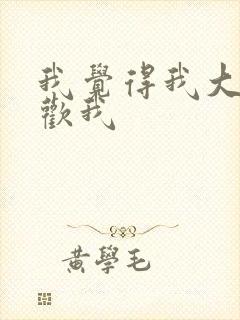 我覺得我大
歡我
黃學毛